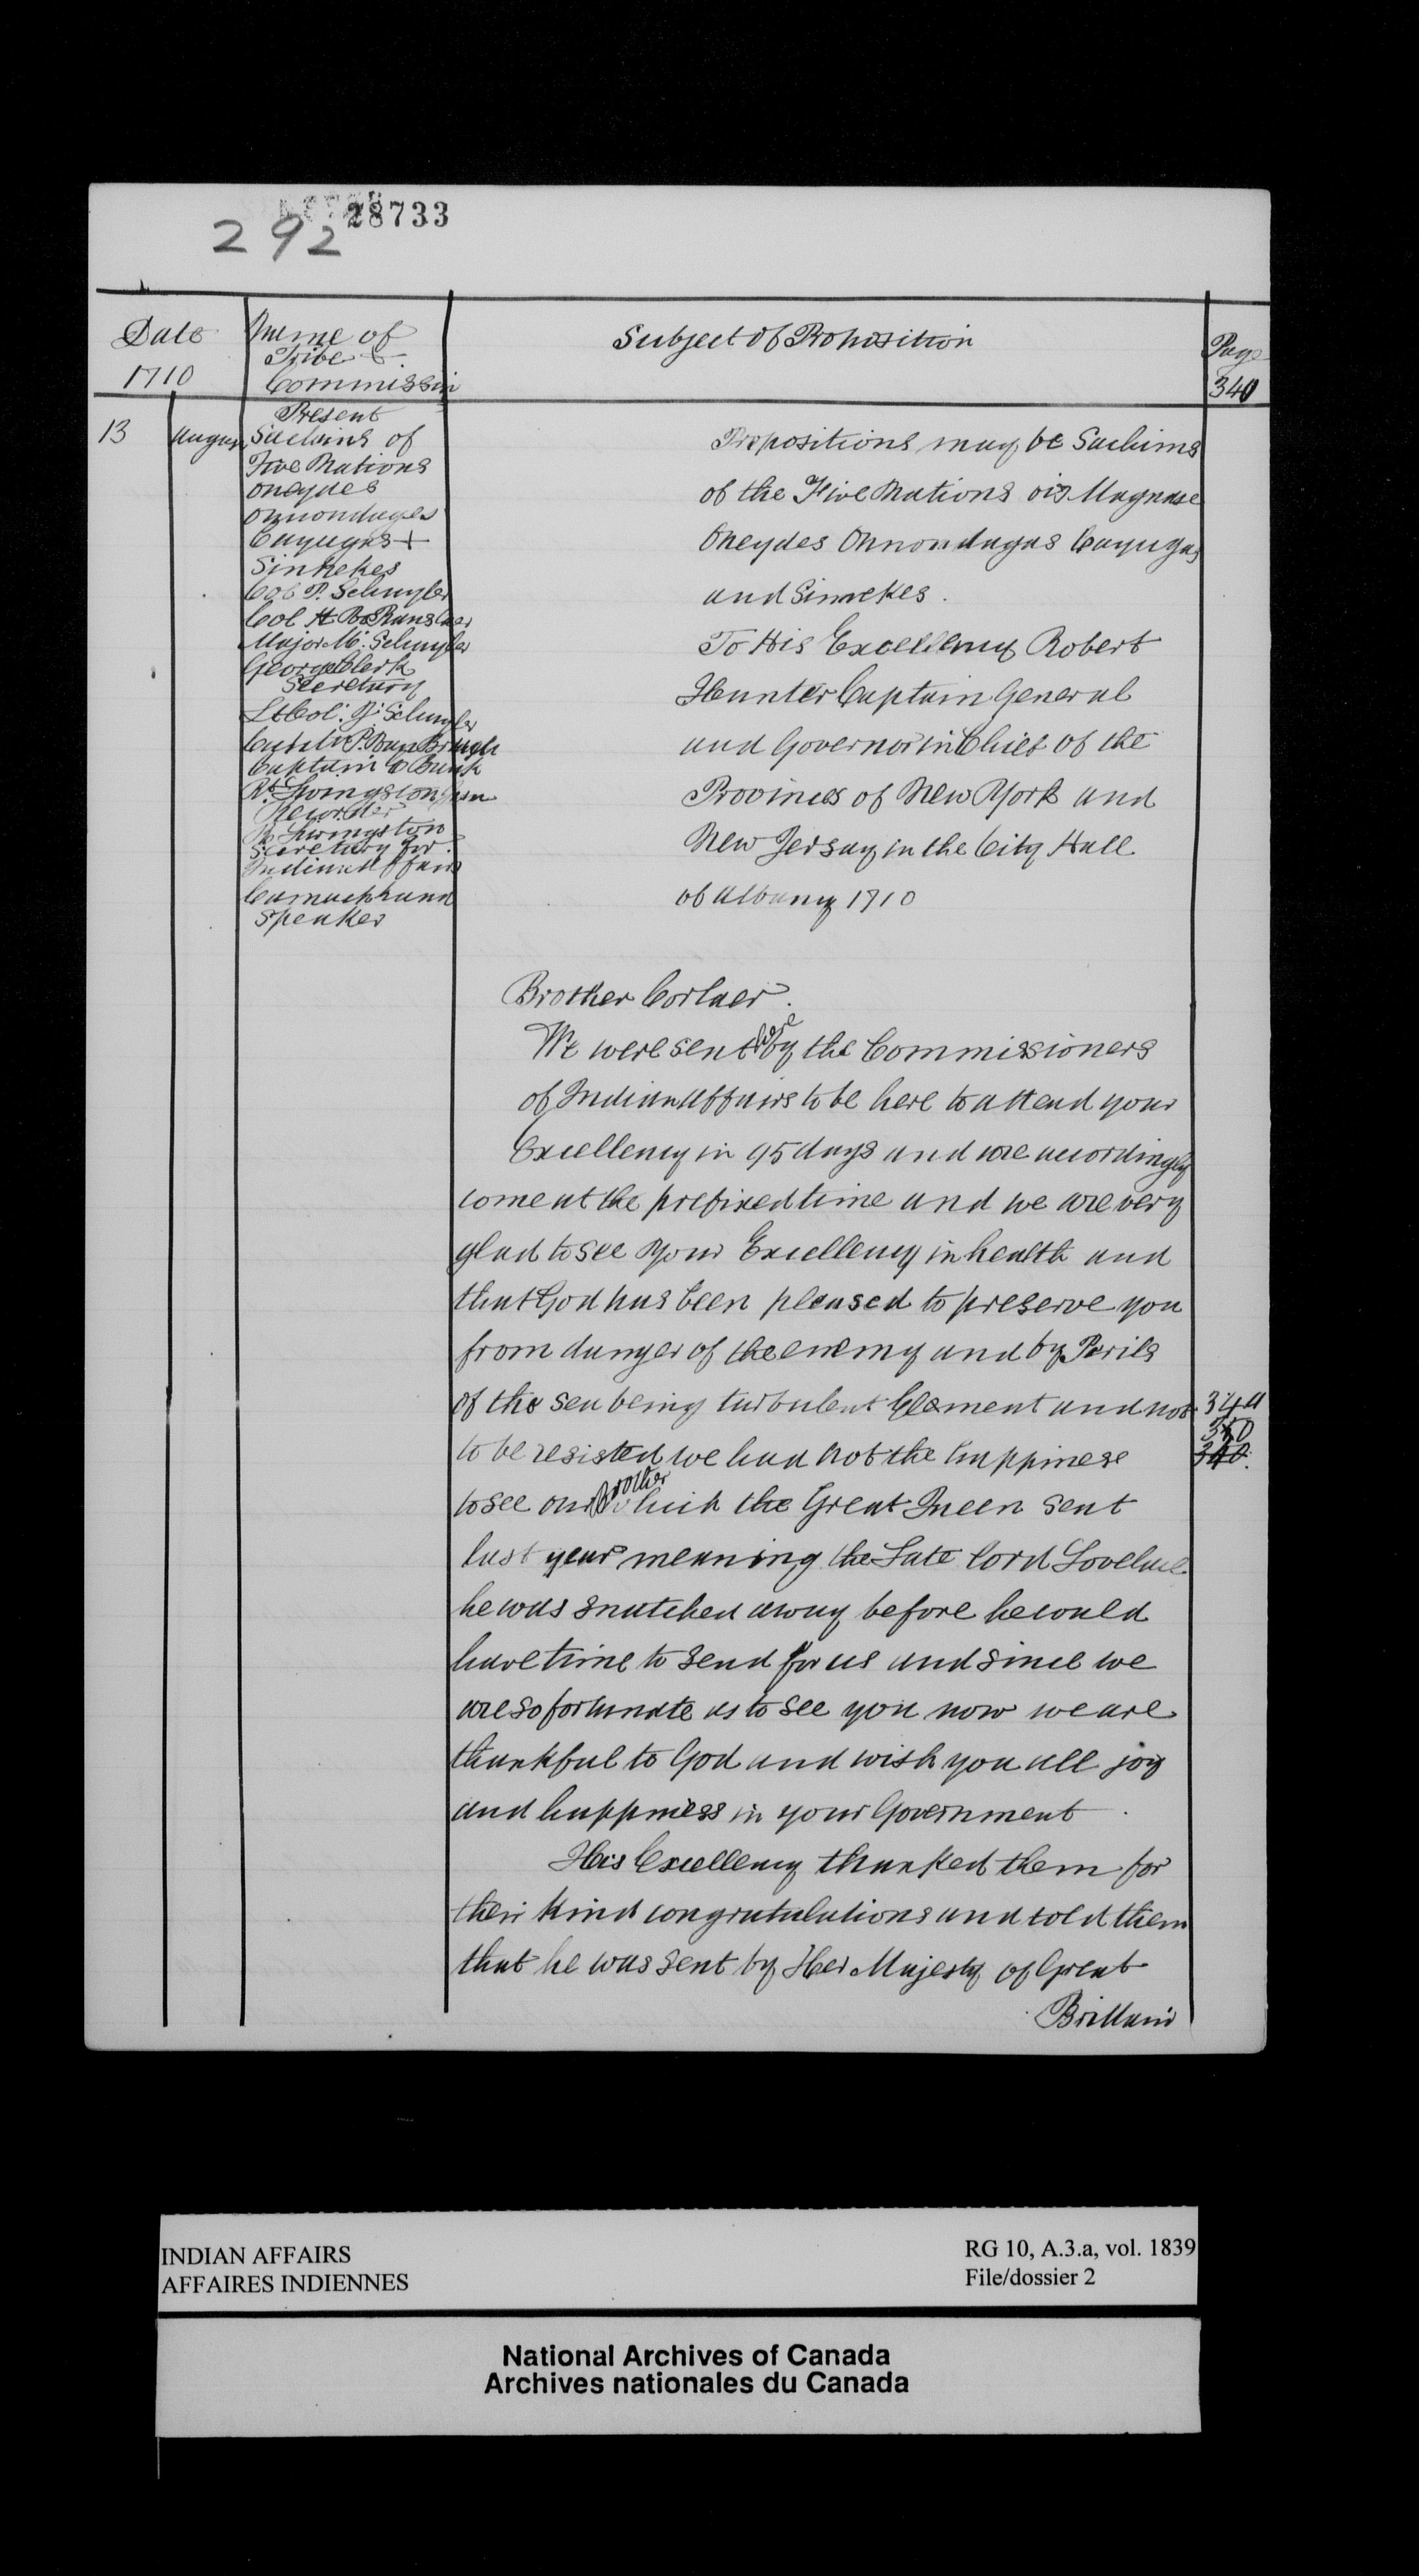 28733
292
Date
1710
Name of
Tribe &
Commissin
Subject of Proposition
Page
340
13 August
Present
Sachims of
Five Nations
Oneydes
Onnondages
Cayugas +
Sinkekes
Col P. Schuyler
Col H
Major M: Schuyler
George Clerk
Secretary
Lt Col. J: Schuyler
P. Van Brugh
Captain
Rt Livingston Jun
Recorder
R Livingston
Secretary for
Indian Affairs
Speaker
Propositions may be Sachims
of the Five Nations viz Maquase
Oneydes Onnondagas Cayugas
and Sinnekes.
To His Excellency Robert
Hunter Captain General
and Governor in Chief of the
Provinces of New York and
New Jersay in the City Hall
of Albany 1710
Brother Corlaer.
We were sent for by the Commissioners
of Indian Affairs to be here to attend your
Excellency in 95 days and are acordingly
come at the prefixed time and we are very
glad to see your Excellency in health and
that God has been pleased to preserve you
from danger of the enemy and by Perils
of the sea being turbulent Element and not 340
350
to be resisted we had not the happinese 340.
to see our Brother which the Great Queen sent
last year meaning the Late Lord Lovelace
he was snatched away before he could
have time to send for us and since we
are so fortunate as to see you now we are
thankful to God and wish you all joy
and happiness in your Government
His Excellency thanked them for
their kind congratulations and told them
that he was sent by Her Majesty of Great
Brittain
INDIAN AFFAIRS
AFFAIRES INDIENNES
RG 10, A.3.a, vol. 1839
File/dossier 2
National Archives of Canada
Archives nationales du Canada